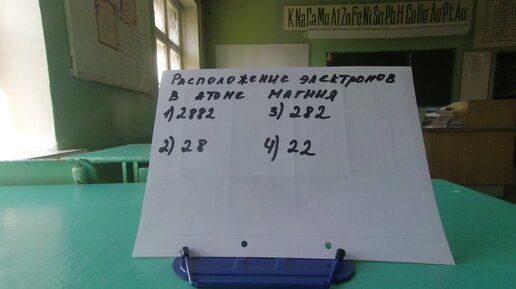 K Na Ca Mg Al Zn Fe Ni Sn Pb H Cu Hg Ag Pt Au
Расположение электронов
в атоме магния
1) 2882 3) 282
2) 28 4) 22